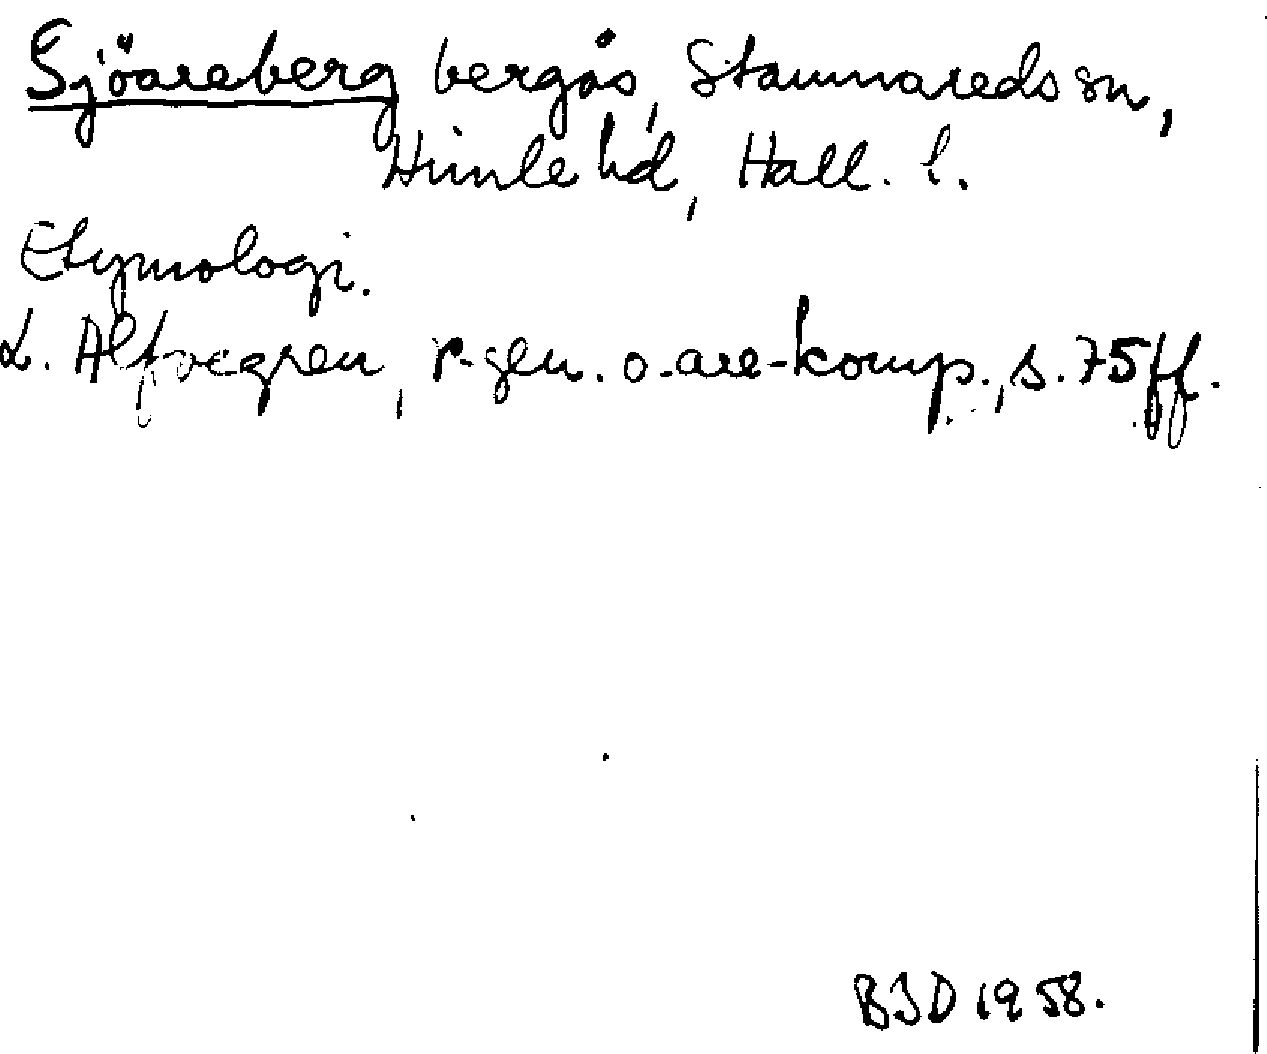 Sjöareberg bergås, Stamnareds sn,
Himle hd, Hall. l.
Etymologi.
L. Alfvegren, r-gen. o. are-komp., s. 75 ff.
BJD 1958.